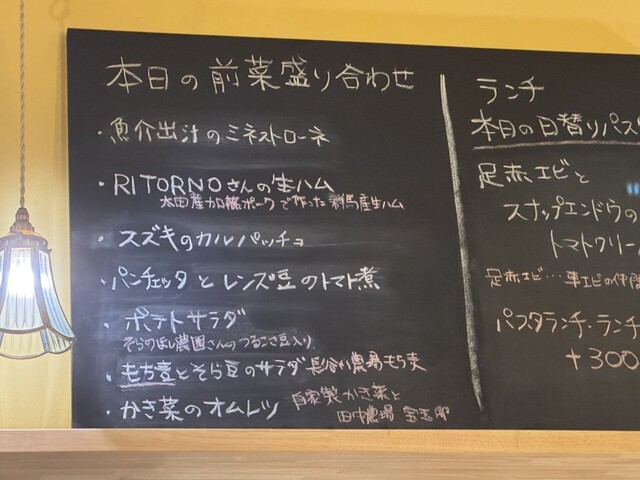 本日の前菜盛り合わせ
・魚介出汁のミネストローネ
・RITORNOさんの生ハム
太田産加藤ポークで作った群馬産生ハム
・スズキのカルパッチョ
・パンチェッタとレンズ豆のトマト煮
・ポテトサラダ
そらのほし農園さんのつるこさ豆入り
・もち麦とそら豆のサラダ 長谷川農場もち麦
・かき菜のオムレツ 自家製かき菜と
田中農場
ランチ
本日の日替りパスタ
足赤エビと
スナップエンドウの
トマトクリーム
足赤エビ…車エビの仲間
パスタランチ・ランチ
+300